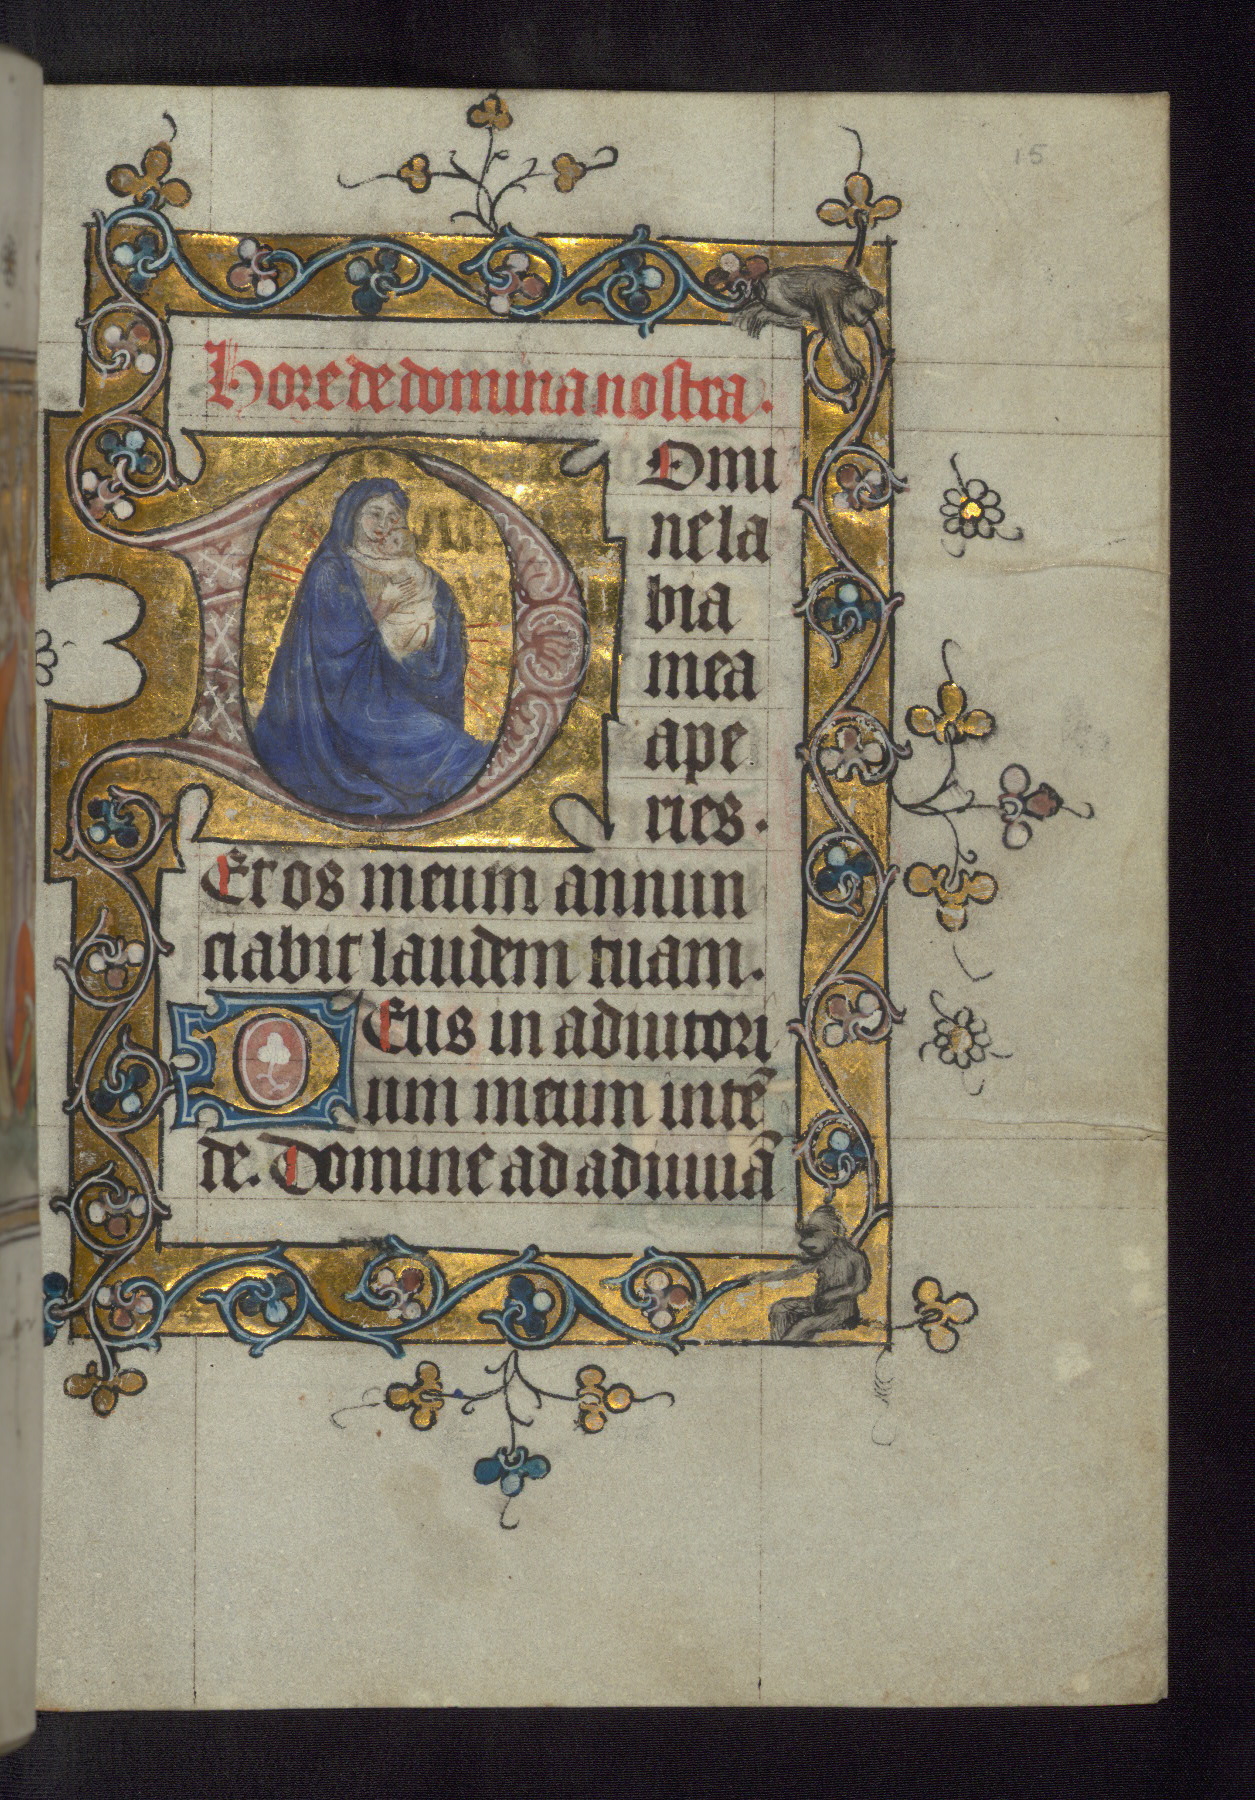 15
Hore de domina nostra.
Domi
ne la
bia
mea
ape
ries.
Et os meum annun
ciabit laudem tuam.
Deus in adiutori
um meum intē
de. Domine ad adiuuā